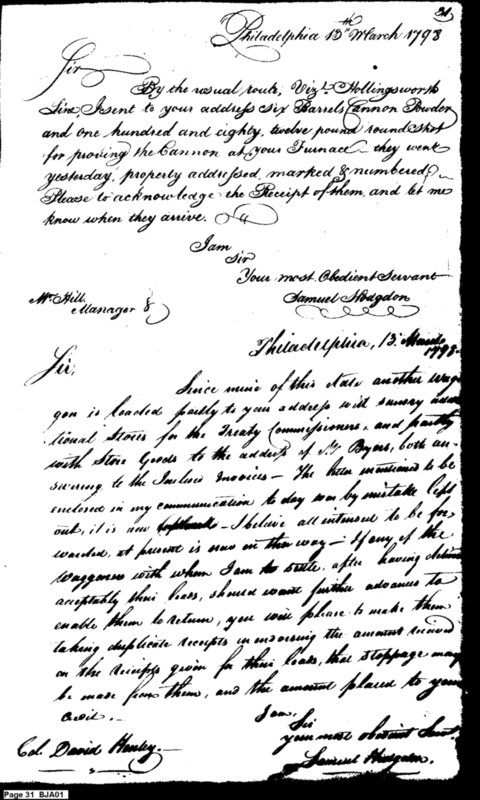 31
Philadelphia 13th March 1793
Sir
By the usual route, Vizt. Hollingsworth
Line, I sent to your address six Barrels Cannon Powder
and one hundred and eighty, twelve pound round Shot
for proving the Cannon at your Furnace they went
yesterday, properly addressed, marked & numbered,
Please to acknowledge the Receipt of them, and let me
know when they arrive.
I am
Sir
Your most Obedient Servant
Samuel Hodgdon
Mr. Hill
Manager &
Philadelphia, 13 March
1793
Sir,
Since mine of this date another wag
gon is loaded partly to your address with sundry addi
tional Stores for the Treaty Commissioners, and partly
with Store Goods to the address of Byers, both an
swering to the Inclosed Invoices — The letter mentioned to be
enclosed in my communication to day was by mistake left
out, it is now — I believe all intended to be for
warded, at present is now on the way — If any of the
Waggoners with whom I am to settle, after having
acceptably their loads, should want further advances to
enable them to return, you will please to make them
taking duplicate receipts in endorsing the amount received
on the receipts given for their loads, that stoppage may
be made from them, and the amount placed to your
credit. —
I am,
Sir
your most obedient Servt.
Samuel Hodgdon
Col. David Henley. —
Page 31 BJA01